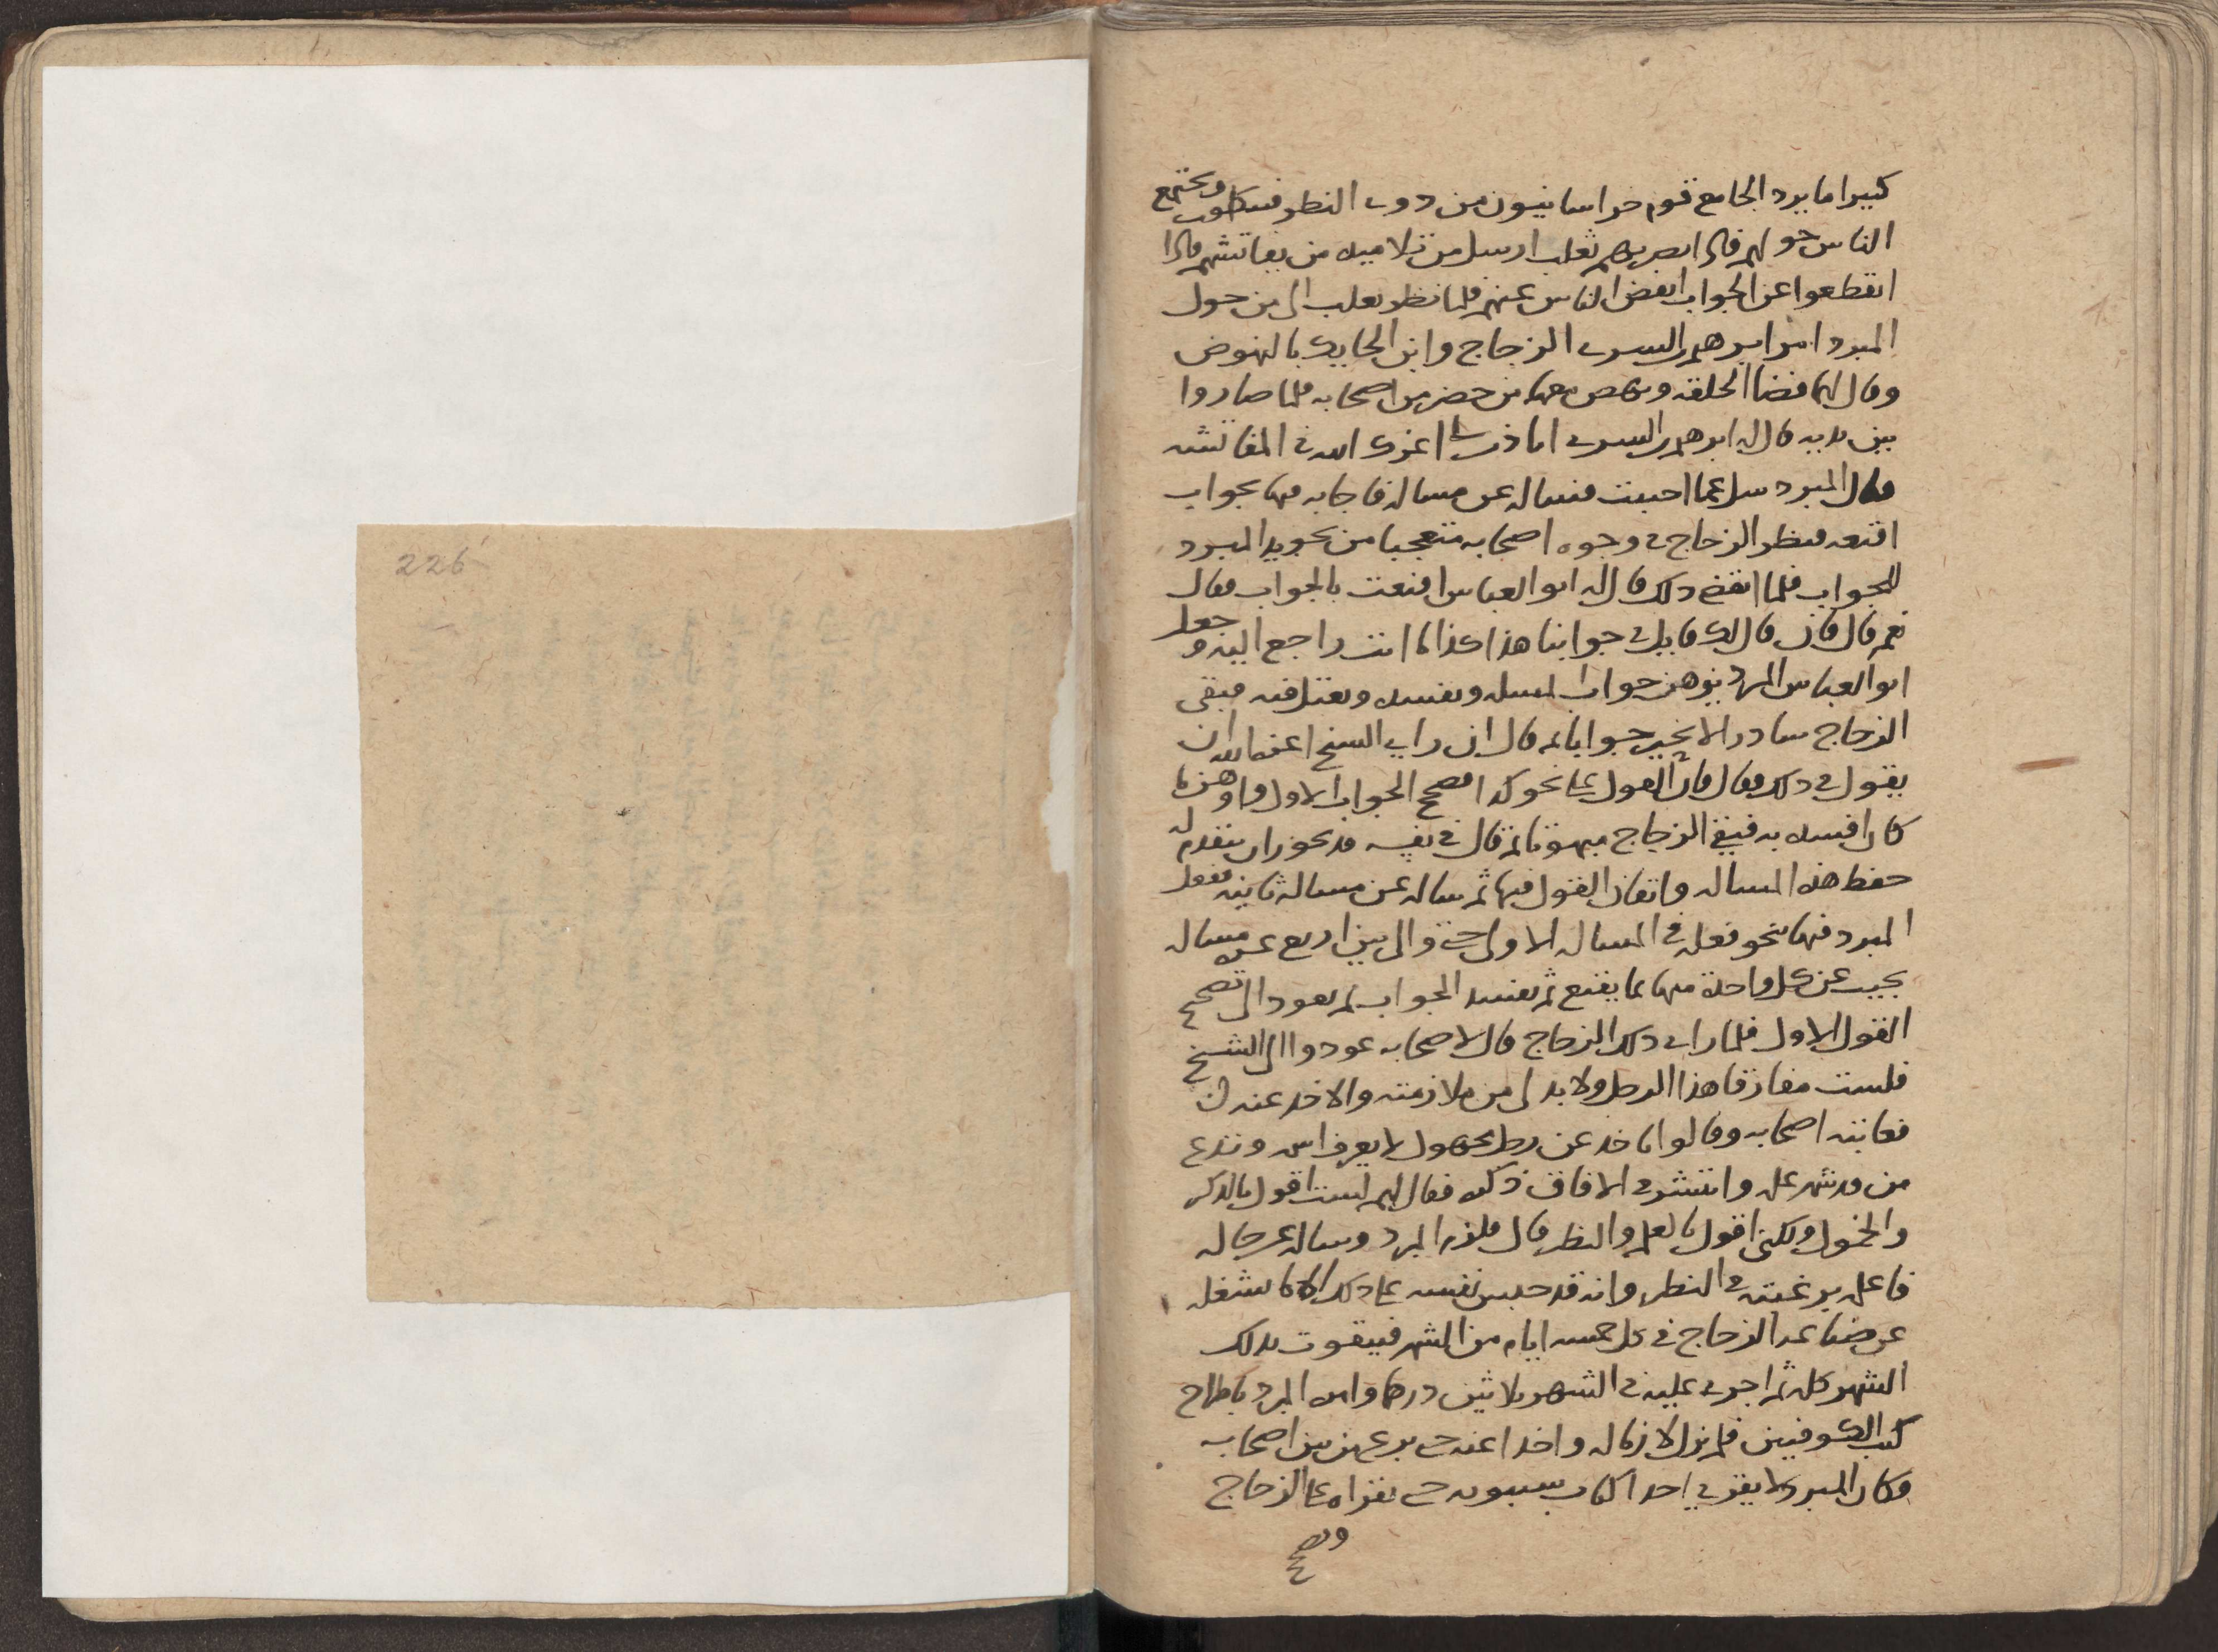 كثيرا ما يرد الجامع قوم خراسانيون من ذوى النظر فيتكلمون ويجتمع
الناس حولهم فاذا ابصر بهم ثعلب ارسل من تلاميذه من يفاتشهم فاذا
انقطعوا عن الجواب انفض الناس عنهم فلما نظر ثعلب الى من حول
المبرد امر ابرهيم بن السرى الزجاج وابن الحايك بالنهوض
وقال لهما فضا الحلقه ونهض معهما من حضر من اصحابه فلما صاروا
بين يديه قال له ابرهيم بن السرى اتاذن لى اعزك الله فى المفاتشه
فقال المبرد سل عما احببت فساله عن مساله فاجابه فيها بجواب
اقنعه فنظر الزجاج فى وجوه اصحابه متعجبا من تجويد المبرد
للجواب فلما انقضى ذلك قال له ابو العباس اقنعت بالجواب فقال
نعم قال فان قال لك قايل فى جوابنا هذا كذا ما انت راجع اليه وجعل
ابو العباس المبرد يوهن جواب المسله ويفسده ويعتل فيه فبقى
الزجاج سادرا لا يحير جوابا ثم قال ان راى الشيخ اعزه الله ان
يقول فى ذلك فقال فان القول على نحو كذا فصحح الجواب الاول واوهن ما
كان افسده به فبقى الزجاج مبهوتا ثم قال فى نفسه قد يجوز ان يتقدم له
حفظ هذه المساله واتقان القول فيها ثم ساله عن مسالة ثانيه ففعل
المبرد فيها نحو فعله فى المساله الاولى حتى والى بين اربع عشره مساله
يجيب عن كل واحدة منها بما يقنع ثم يفسد الجواب ثم يعود الى تصحيح
القول الاول فلما راى ذلك الزجاج قال لاصحابه عودوا الى الشيخ
فلست مفارقا هذا الرجل ولا بد لى من ملازمته والاخذ عنه
فعاتبه اصحابه وقالوا تاخذ عن رجل مجهول لا يعرف اسمه وتدع
من قد شهر علمه وانتشر فى الافاق ذكره فقال لهم لست اقول بالذكر
والخمول ولكنى اقول بالعلم والنظر قال فلزم المبرد وساله عن حاله
فاعلمه برغبته فى النظر وانه قد حبس نفسه على ذلك الا ما يشغله
عن صناعه الزجاج فى كل خمسه ايام من الشهر فيتقوت بذلك
الشهر كله ثم اجرى عليه فى الشهر ثلاثين درهما وامره المبرد باطراح
كتب الكوفيين فلم يزل لازما له واخذا عنه حتى برع من بين اصحابه
فكان المبرد لا يقرى احدا كتاب سيبويه حتى يقراه على الزجاج
ويصحح
226